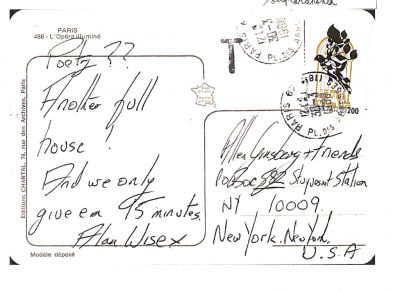 PARIS
486 - L'Opéra illuminé
Poetry ??
Another full
house !
And we only
give em 95 minutes.
Alan Wise x
Modèle déposé
Editions CHANTAL, 74, rue des Archives, Paris
PARIS
PL. DES
200
Allen Ginsberg + friends
PO Box 582 Stuyvesant Station
NY 10009
New York. New York.
U.S.A